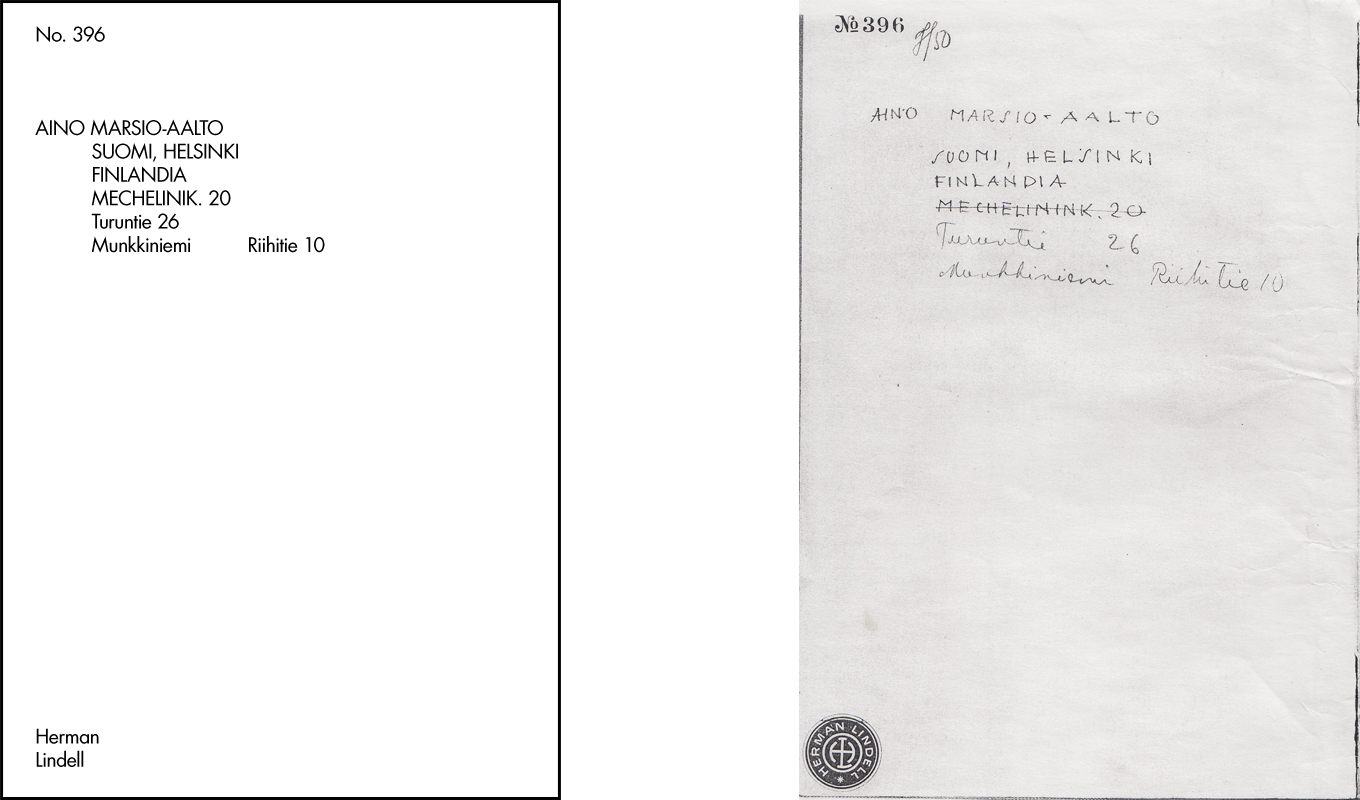 No. 396
AINO MARSIO-AALTO
SUOMI, HELSINKI
FINLANDIA
MECHELINIK. 20
Turuntie 26
Munkkiniemi Riihitie 10
Herman
Lindell
№ 396
AINO MARSIO-AALTO
SUOMI, HELSINKI
FINLANDIA
MECHELININK. 20
Turuntie 26
Munkkiniemi Riihitie 10
HERMAN LINDELL
HL